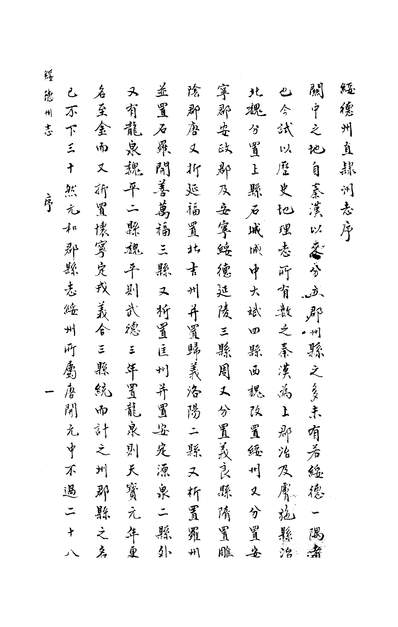 綏德州直隸州志序
關中之地自秦漢以來分五郡州縣之多未有若綏德一隅者
也今試以歷史地理志所有數之秦漢為上郡治及膚施縣治
北魏分置上縣石城城中大斌四縣西魏改置綏州又分置安
寧郡安政郡及安寧綏德延陵三縣周又分置義良縣隋置雕
陰郡唐又析延福置北吉州并置歸義洛陽二縣又析置羅州
並置石羅開善萬福三縣又析置匡州并置安定源泉二縣外
又有龍泉魏平二縣魏平則武德三年置龍泉則天寶元年更
名至金而又析置懷寧定戎義合三縣統而計之州郡縣之名
已不下三十然元和郡縣志綏州所屬唐開元中不過二十八
綏德州志
序
一